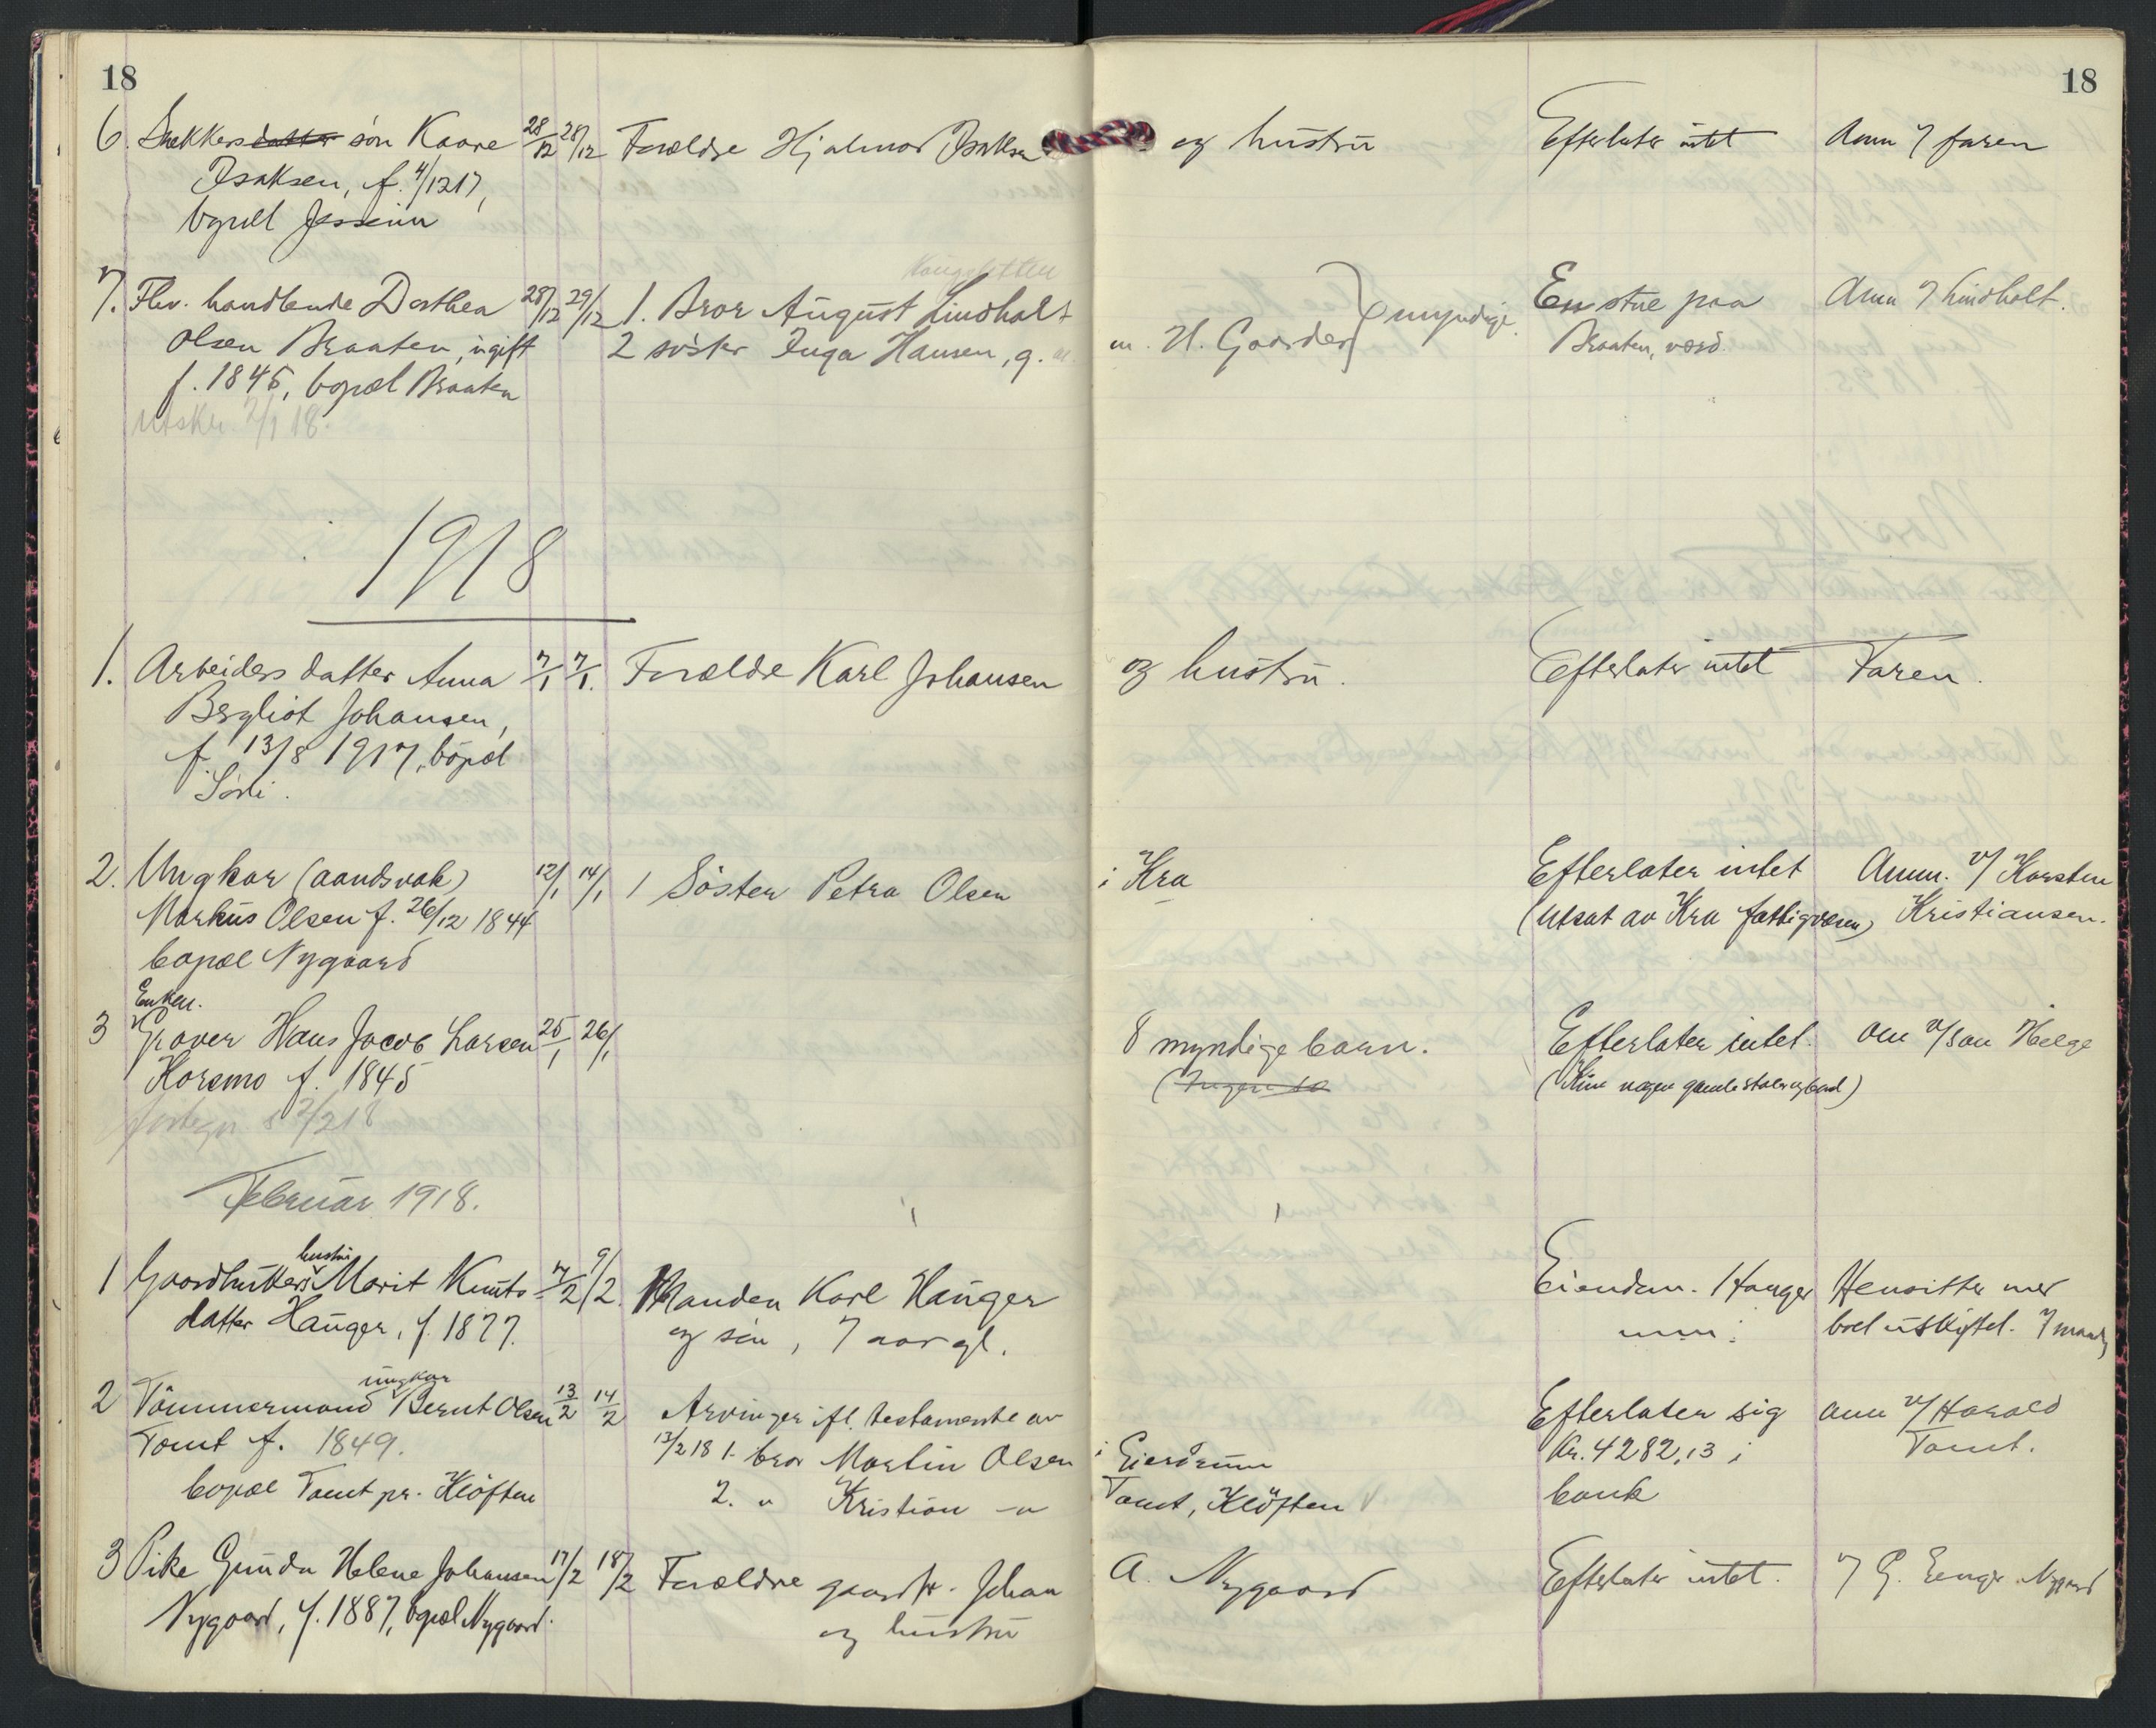 18
18
6. Snekkers datter søn Kaare 28/12 28/12 Forældre Hjalmar Isaksen og hustru Efterlater intet Anm v/ faren
Isaksen, f. 4/12 17,
bopæl Jesseim
7. Fhv. handlende Dorthea 28/12 29/12 1. Bror August Lindholt myndige. En stue paa Anm v/ Lindholt.
Olsen Braaten, ugift 2 søster Inga Hansen, g. m. H. Gaarder Braaten, værd.
f. 1845, bopæl Braaten
Utskr. 2/1 18.
1918
1. Arbeiders datter Anna 7/1 7/1. Forældre Karl Johansen og hustru. Efterlater intet Faren.
Bergliot Johansen,
f. 13/8 1917, bopæl
Sørli.
2. Ungkar (aandsvak) 12/1 14/1 1 Søster Petra Olsen i Kra Efterlater intet Anm. v/ Karsten
Markus Olsen f. 26/12 1844 (utsat av Kra fattigvæsen) Kristiansen.
bopæl Nygaard
Enkem.
3 Graver Hans Jacob Larsen 25/1 26/1 8 myndige barn. Efterlater intet. Anm v/ søn Helge
Korsmo f. 1845 (Kun nogen gamle stoler og bord)
2/2 18
Februar 1918.
hustru
1 Gaardbrukers Marit Knuts- 7/2 9/2. Manden Karl Hauger Eiendom. Hauger Hensitter med
datter Hauger, f. 1877. og søn, 7 aar gl. boet uskiftet. v/ manden
ungkar
2 Tømmermand Bernt Olsen 13/2 14/2 Arvinger ifl. testamente av Efterlater sig Anm v/ Harald
Tomt f. 1849. 13/2 18 1. bror Martin Olsen i Eierdrum Kr. 4282,13 i Tomt.
bopæl Tomt pr. Kløften 2. " Kristian — " Tomt, Kløften bank
3 Pike Gunda Helene Johansen 17/2 18/2 Forældre gaardbr. Johan A. Nygaard Efterlater intet. v/ G. Nygaard
Nygaard, f. 1887, bopæl Nygaard. og hustru